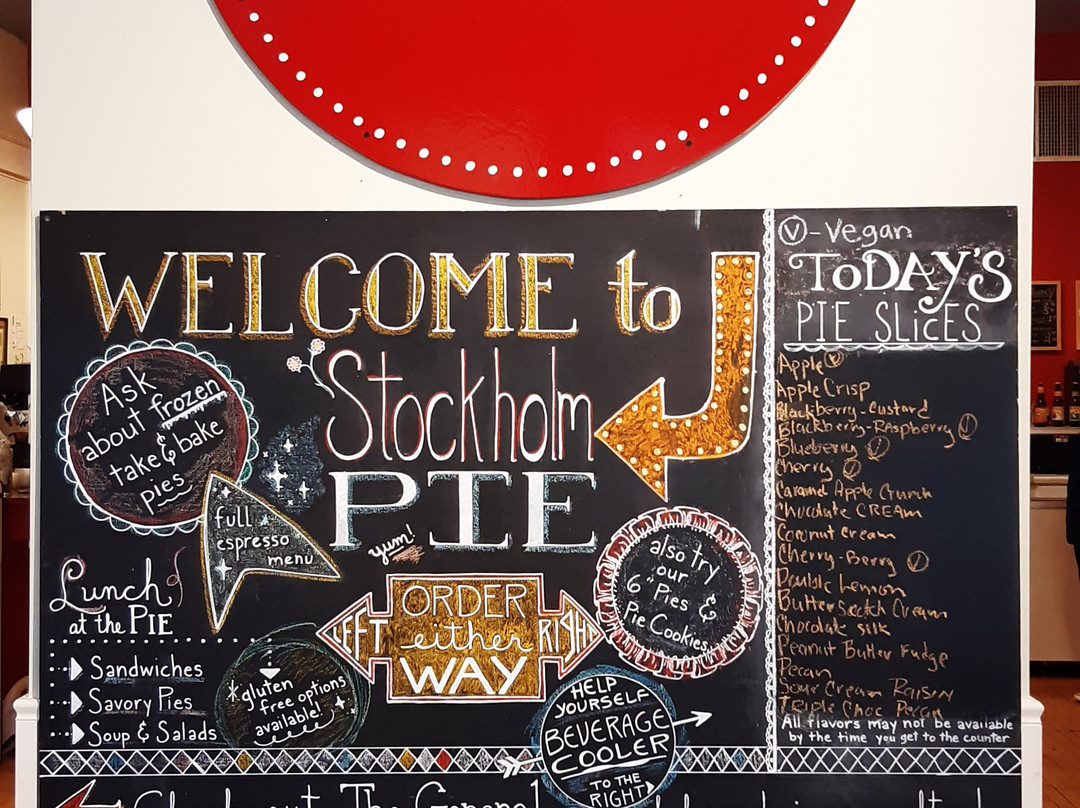 WELCOME to
Stockholm
PIE
Ask
about frozen
take & bake
pies
full
espresso
menu
yum!
Lunch
at the PIE
Sandwiches
Savory Pies
Soup & Salads
*gluten
free options
available!
ORDER
LEFT either RIGHT
WAY
also try
our
6" Pies &
Pie Cookies
HELP
YOURSELF
BEVERAGE
COOLER
TO THE
RIGHT
V - Vegan
TODAY'S
PIE SLICES
Apple V
Apple Crisp
Blackberry-Custard
Blackberry-Raspberry V
Blueberry V
Cherry V
Caramel Apple Crunch
Chocolate CREAM
Coconut Cream
Cherry-Berry V
Double Lemon
Butterscotch Cream
Chocolate Silk
Peanut Butter Fudge
Pecan
Sour Cream Raisin
Triple Choc Pecan
All flavors may not be available
by the time you get to the counter
The General